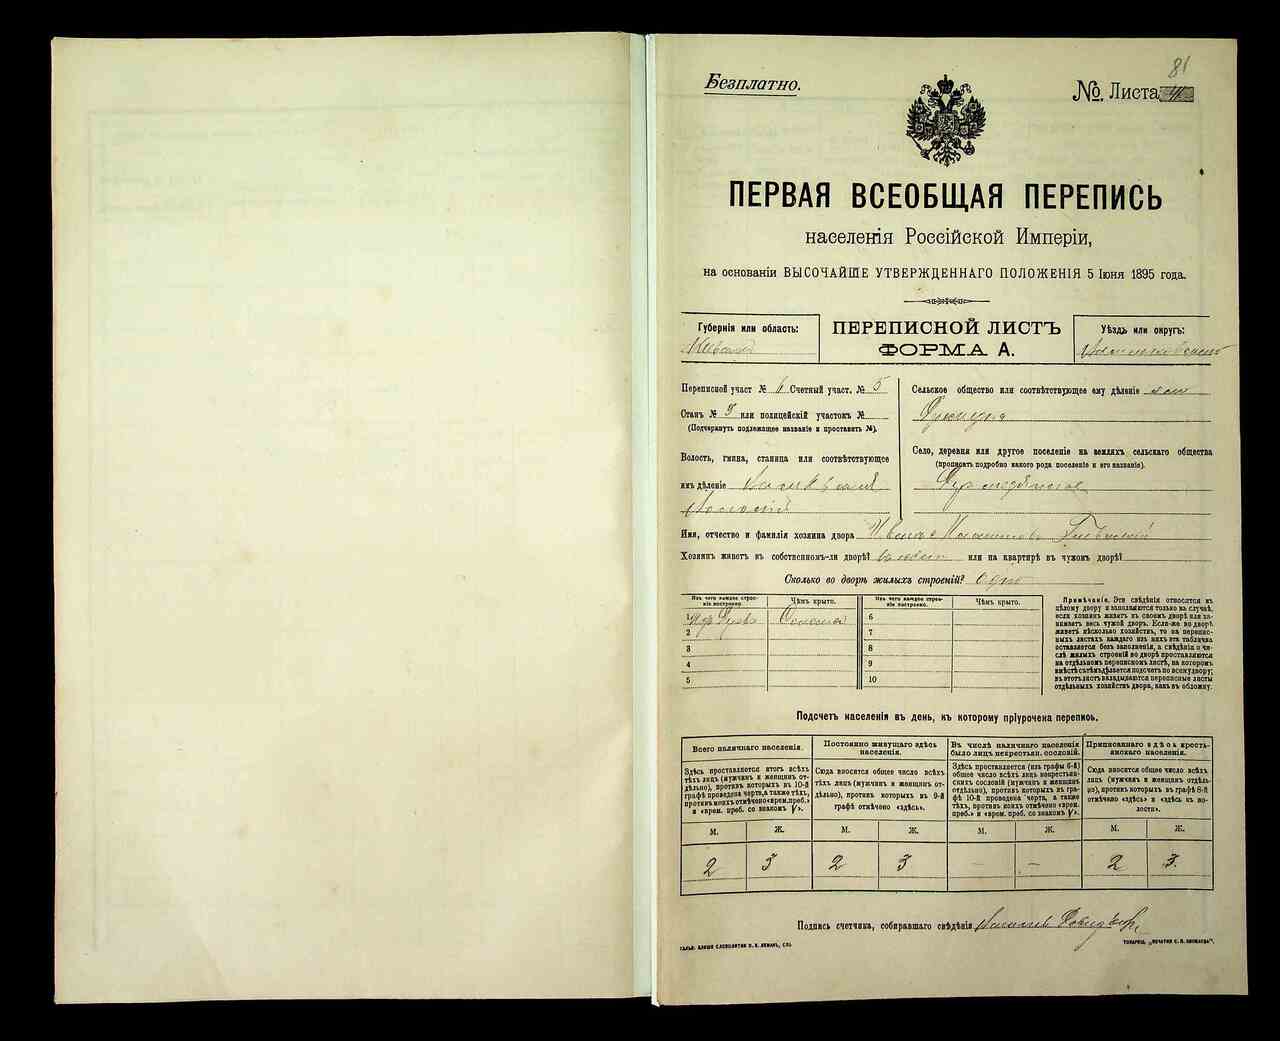 81
Безплатно.
№. Листа
ПЕРВАЯ ВСЕОБЩАЯ ПЕРЕПИСЬ
населенія Россійской Имперіи,
на основаніи ВЫСОЧАЙШЕ УТВЕРЖДЕННАГО ПОЛОЖЕНІЯ 5 Іюня 1895 года.
Губернія или область:
Кіевская
ПЕРЕПИСНОЙ ЛИСТЪ
ФОРМА А.
Уѣздъ или округъ:
Переписной участ № 6 Счетный участ. № 5
Станъ № 5 или полицейскій участокъ №
(Подчеркнуть подлежащее названіе и проставить №).
Волость, гмина, станица или соотвѣтствующее
имъ дѣленіе
Сельское общество или соотвѣтствующее ему дѣленіе
Село, деревня или другое поселеніе на земляхъ сельскаго общества
(прописать подробно какого рода поселеніе и его названіе).
Имя, отчество и фамилія хозяина двора
Хозяинъ живетъ въ собственномъ-ли дворѣ? или на квартирѣ въ чужомъ дворѣ?
Сколько во дворѣ жилыхъ строеній? одно
Изъ чего каждое строеніе построено. Чѣмъ крыто. Изъ чего каждое строеніе построено. Чѣмъ крыто.
1 Изъ дерева Соломой 6
2 7
3 8
4 9
5 10
Примѣчаніе. Эти свѣдѣнія относятся къ
цѣлому двору и заполняются только въ случаѣ,
если хозяинъ живетъ въ своемъ дворѣ или за-
нимаетъ весь чужой дворъ. Если-же во дворѣ
живетъ нѣсколько хозяйствъ, то на перепис-
ныхъ листахъ каждаго изъ нихъ эта табличка
оставляется безъ заполненія, а свѣдѣнія о чи-
слѣ жилыхъ строеній во дворѣ проставляются
на отдѣльномъ переписномъ листѣ, на которомъ
вмѣстѣ съ тѣмъ дѣлается подсчетъ по всему двору;
въ этотъ листъ вкладываются переписные листы
отдѣльныхъ хозяйствъ двора, какъ въ обложку.
Подсчетъ населенія въ день, къ которому пріурочена перепись.
Всего наличнаго населенія.
Здѣсь проставляется итогъ всѣхъ
тѣхъ лицъ (мужчинъ и женщинъ от-
дѣльно), противъ которыхъ въ 10-й
графѣ проведена черта, а также тѣхъ,
противъ коихъ отмѣчено «врем. преб.»
и «врем. преб. со знакомъ V».
Постоянно живущаго здѣсь
населенія.
Сюда вносится общее число всѣхъ
тѣхъ лицъ (мужчинъ и женщинъ от-
дѣльно), противъ которыхъ въ 9-й
графѣ отмѣчено «здѣсь».
Въ числѣ наличнаго населенія
было лицъ некрестьян. сословій.
Здѣсь проставляется (изъ графы 6-й)
общее число всѣхъ лицъ некрестьян-
скихъ сословій (мужчинъ и женщинъ
отдѣльно), противъ которыхъ въ гра-
фѣ 10-й проведена черта, а также
тѣхъ, противъ коихъ отмѣчено «врем.
преб.» и «врем. преб. со знакомъ V».
Приписаннаго здѣсь кресть-
янскаго населенія.
Сюда вносится общее число всѣхъ
лицъ (мужчинъ и женщинъ отдѣль-
но), противъ которыхъ въ графѣ 8-й
отмѣчено «здѣсь» и «здѣсь въ во-
лости».
М. Ж. М. Ж. М. Ж. М. Ж.
2 3 2 3 – – 2 3
Подпись счетчика, собиравшаго свѣдѣнія